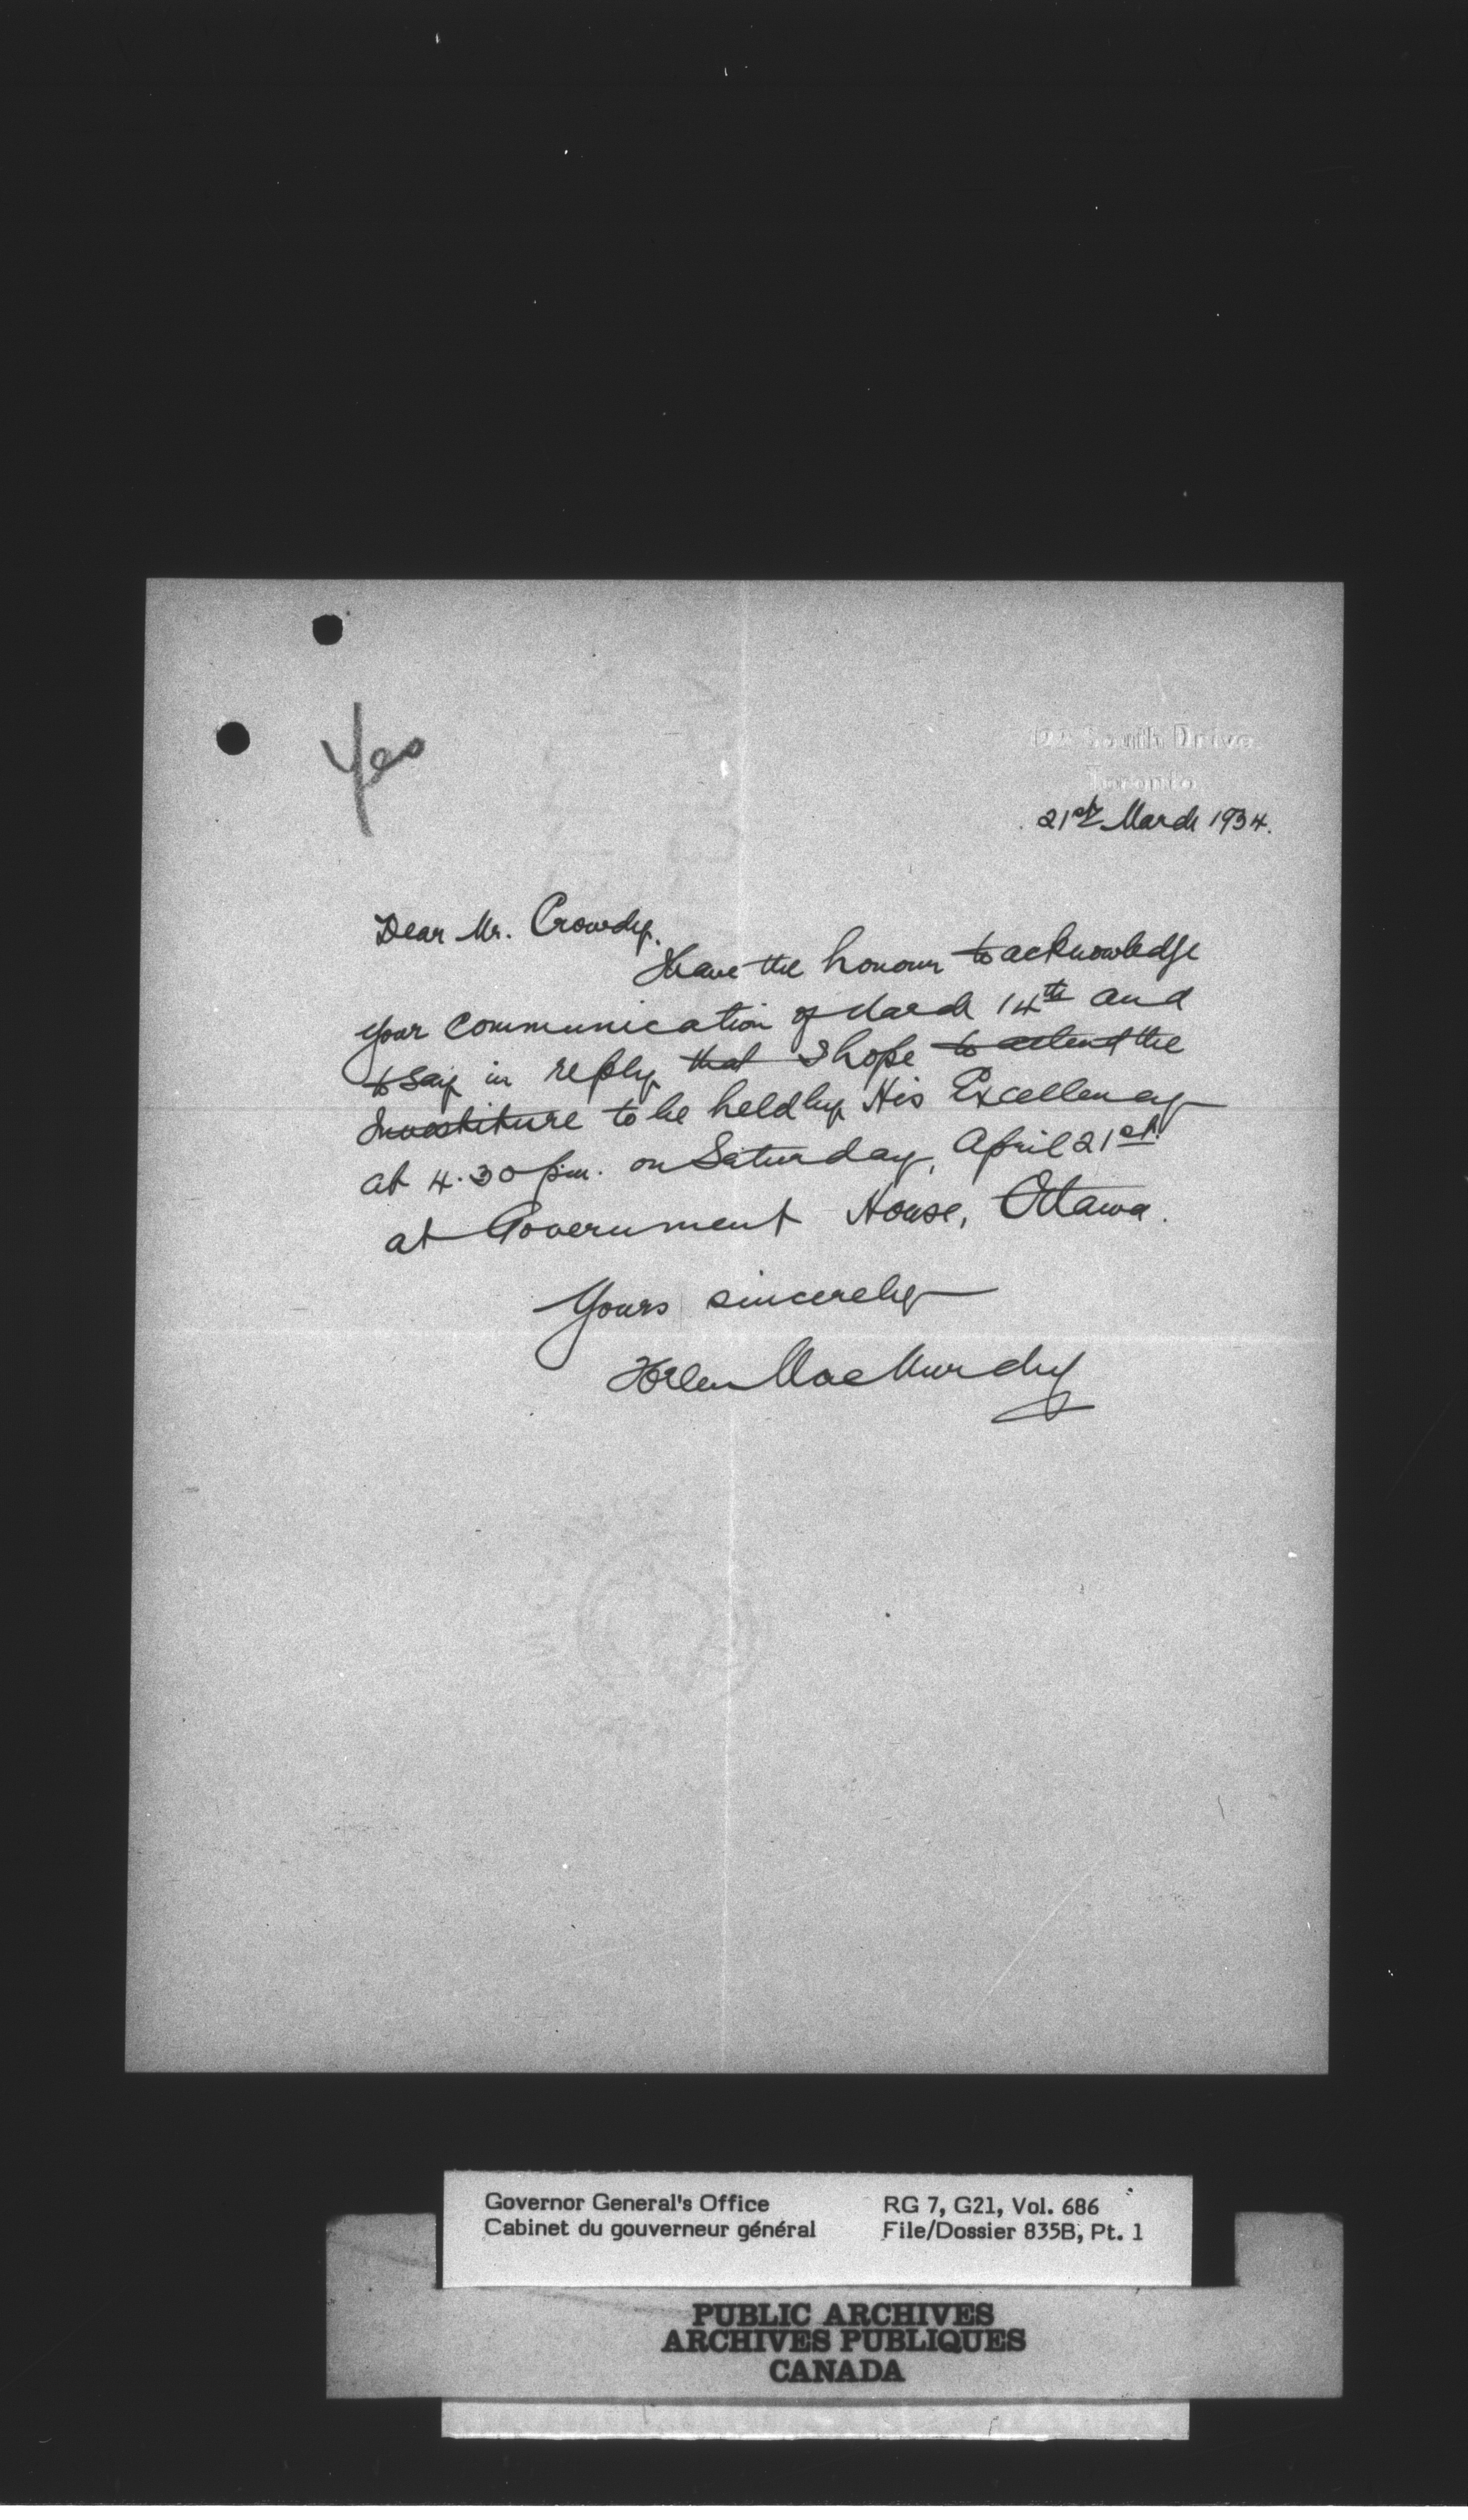 Yes
South Drive
Toronto
21st March 1934.
Dear Mr. Crowdy.
I have the honour to acknowledge
your communication of March 14th and
to say in reply that I hope to attend the
Investiture to be held by His Excellency
at 4.30 p.m. on Saturday, April 21st
at Government House, Ottawa.
Yours sincerely
Helen MacMurchy
Governor General's Office
Cabinet du gouverneur général
RG 7, G21, Vol. 686
File/Dossier 835B, Pt. 1
PUBLIC ARCHIVES
ARCHIVES PUBLIQUES
CANADA